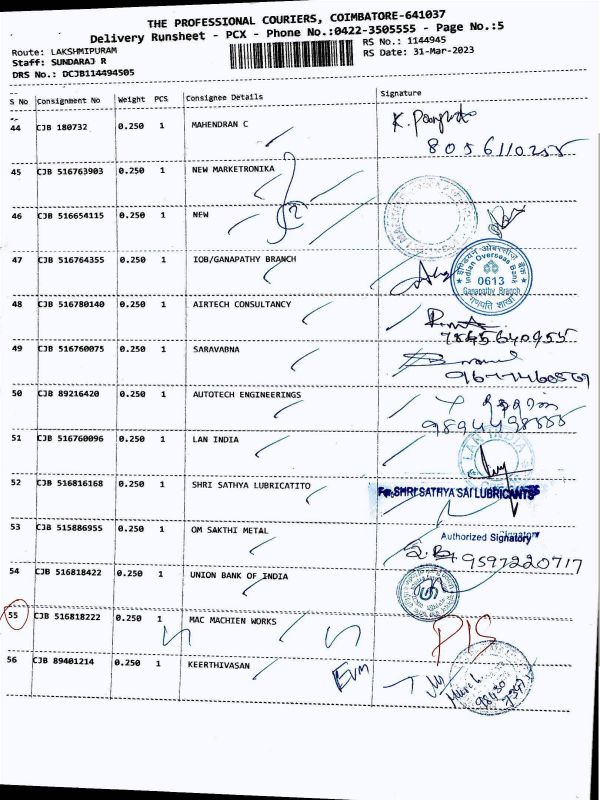 THE PROFESSIONAL COURIERS, COIMBATORE-641037
Delivery Runsheet - PCX - Phone No.:0422-3505555 - Page No.:5
Route: LAKSHMIPURAM
RS No.: 1144945
Staff: SUNDARAJ R
RS Date: 31-Mar-2023
DRS No.: DCJB114494505
S No Consignment No Weight PCS Consignee Details Signature
44 CJB 180732 0.250 1 MAHENDRAN C
8056110255
45 CJB 516763903 0.250 1 NEW MARKETRONIKA
46 CJB 516654115 0.250 1 NEW
47 CJB 516764355 0.250 1 IOB/GANAPATHY BRANCH
इंडियन ओवरसीज़ बैंक
Indian Overseas Bank
0613
Ganapathy Branch
गणपति शाखा
48 CJB 516780140 0.250 1 AIRTECH CONSULTANCY
7845640955
49 CJB 516760075 0.250 1 SARAVABNA
9677460569
50 CJB 89216420 0.250 1 AUTOTECH ENGINEERINGS
9894498555
51 CJB 516760096 0.250 1 LAN INDIA
LAN INDIA
52 CJB 516816168 0.250 1 SHRI SATHYA LUBRICATITO
For SHRI SATHYA SAI LUBRICANTS
Authorized Signatory
53 CJB 515886955 0.250 1 OM SAKTHI METAL
9597220717
54 CJB 516818422 0.250 1 UNION BANK OF INDIA
55 CJB 516818222 0.250 1 MAC MACHIEN WORKS
56 CJB 89401214 0.250 1 KEERTHIVASAN